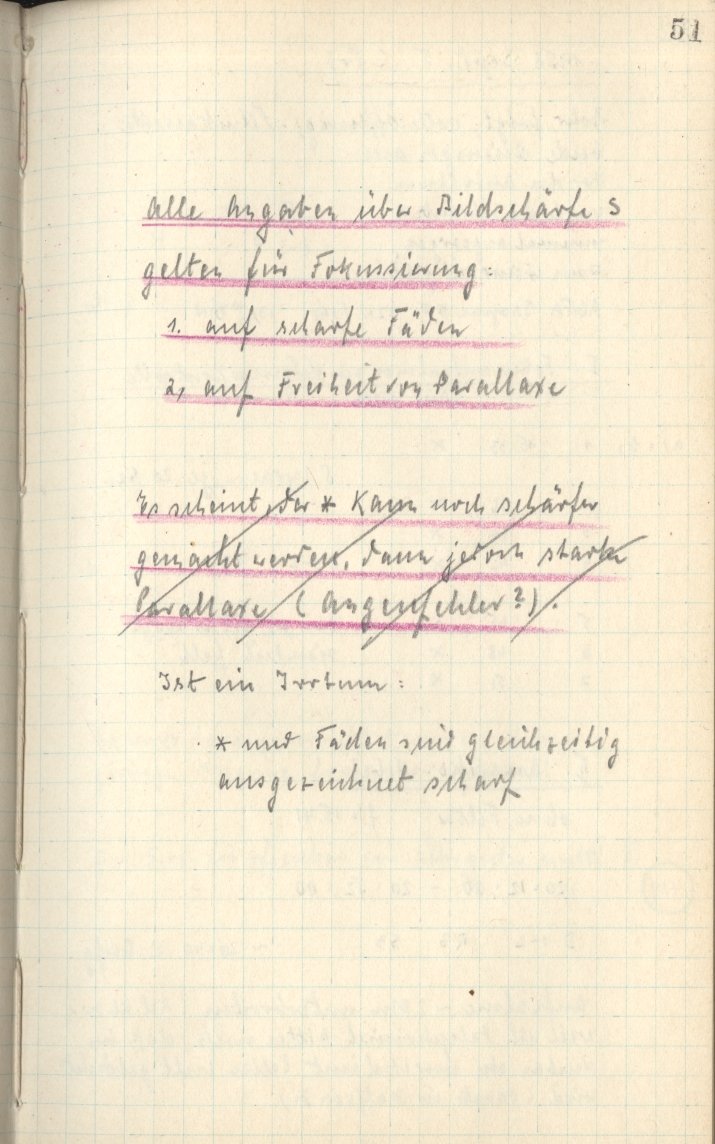 51
Alle Angaben über Bildschärfe S
gelten für Fokussierung:
1. auf scharfe Fäden
2, auf Freiheit von Parallaxe
Es scheint, der * kann noch schärfer
gemacht werden, dann jedoch starke
Parallaxe (Augenfehler?).
Ist ein Irrtum:
* und Fäden sind gleichzeitig
ausgezeichnet scharf